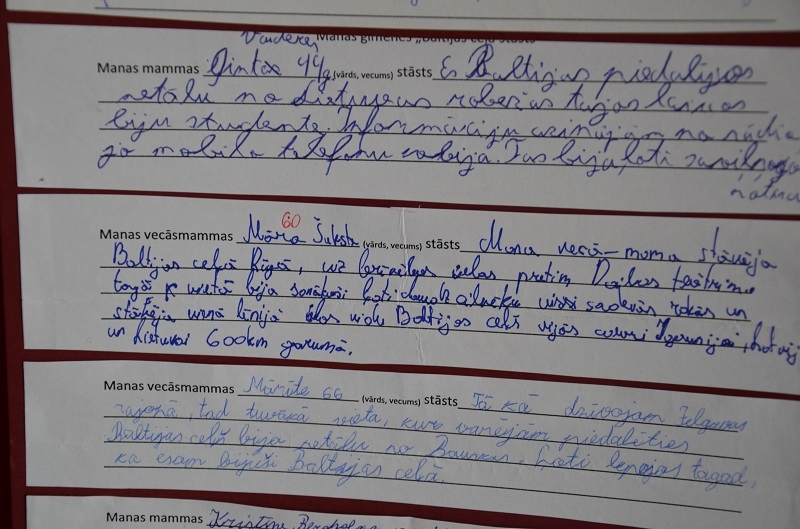 Manas ģimenes „Baltijas ceļa stāsts
Manas mammas Gintas 44g (vārds, vecums) stāsts Es Baltijas piedalījos
netālu no Lietuvas robežas tajos laikos
biju studente. Informāciju uzinājām no radio
jo mobilo telefonu nebija. Tas bija ļoti
60
Manas vecāsmammas Māra (vārds, vecums) stāsts Mana vecā-mama stāvēja
Baltijas ceļā Rīgā, uz ielas pretim Dailes teātrim
tagā vietā bija ļoti daudz cilvēku visi sadevās rokās un
stāvēja vienā līnijā Baltijas ceļš vijās cauri Igaunijai, Latvij
un Lietuvai 600km garumā.
Manas vecāsmammas Mārīte 66 (vārds, vecums) stāsts Tā kā dzīvojam Jelgavas
rajonā, tad tuvākā vieta, kur varējām piedalīties
Baltijas ceļš bija netālu no Bauskas. Ļoti lepojos tagad,
ka esam bijuši Baltijas ceļā.
Manas mammas Kristīne